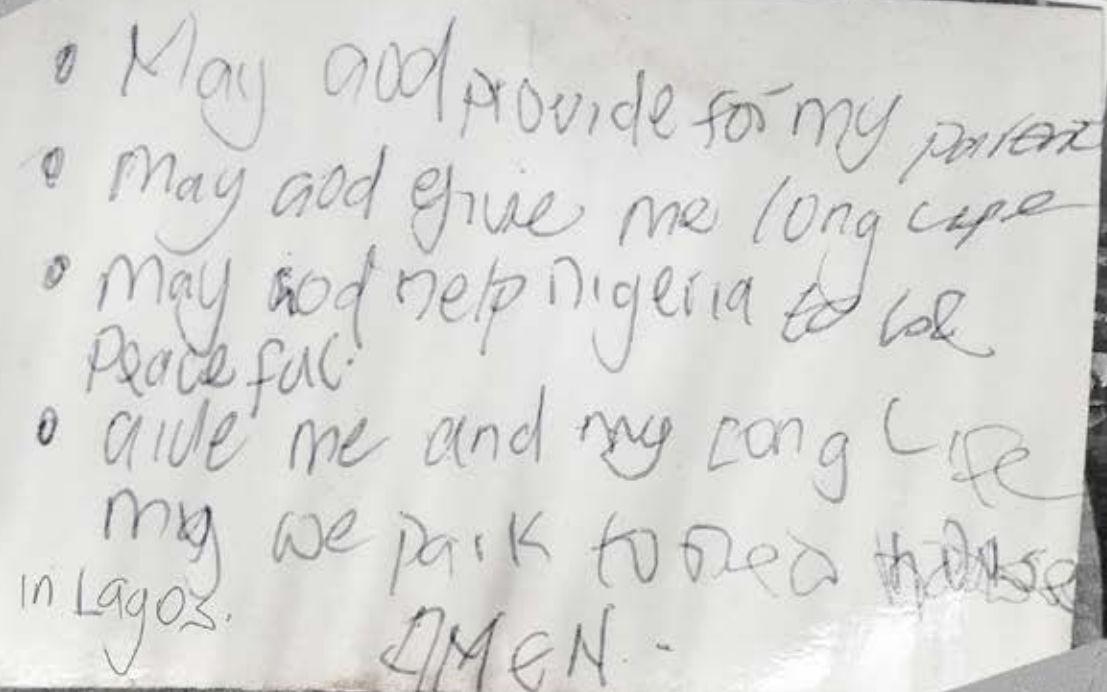 • May God provide for my parent
• May God give me long Life
• May God help Nigeria to be
Peaceful.
• Give me and my long Life
my we park to new house
in Lagos.
AMEN.